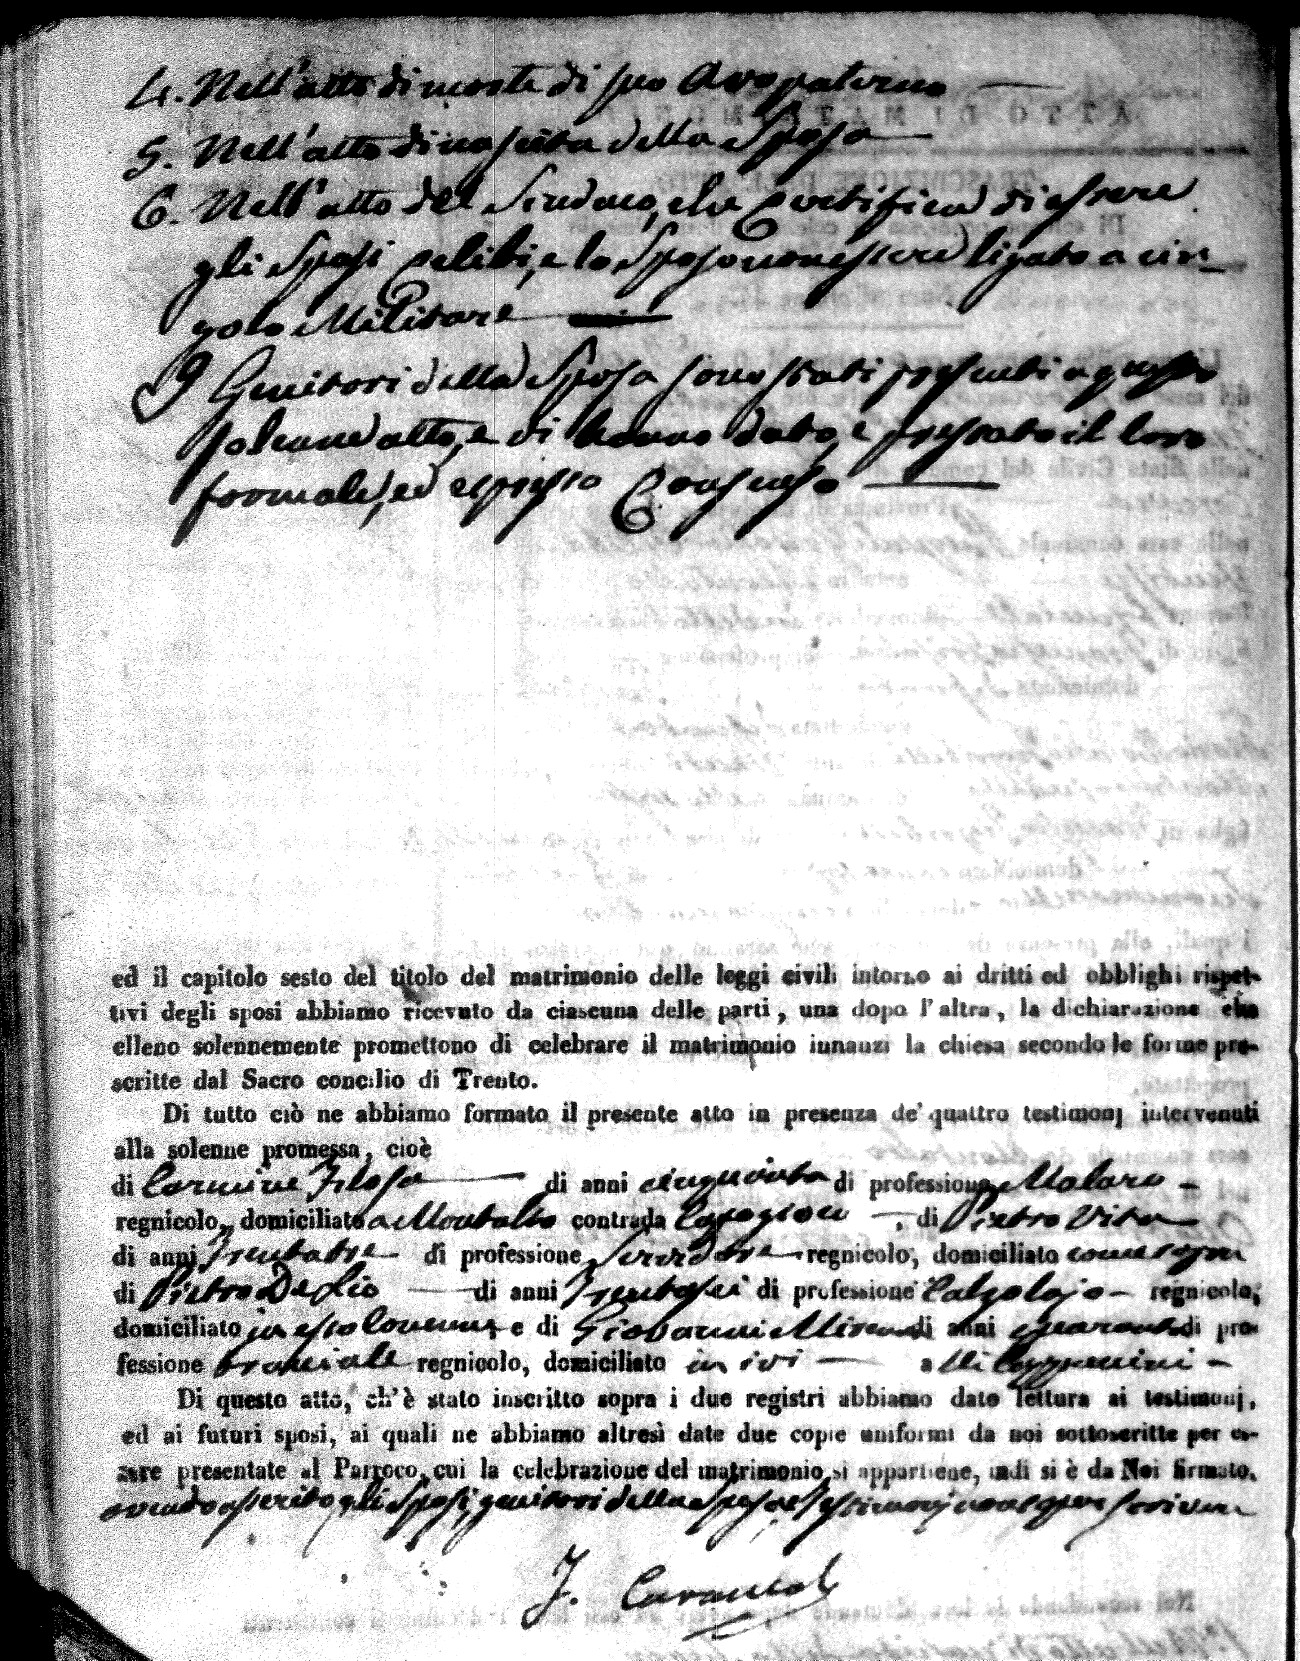 4. Nell'atto di morte di suo Avo paterno
5. Nell'atto di nascita della Sposa
6. Nell'atto del Sindaco, che Certifica di essere
gli Sposi Celibi, e lo Sposo non essere ligato a vin-
golo Militare
I Genitori della Sposa sono stati presenti a questo
solenne atto, e vi hanno dato, e prestato il loro
formale, ed espresso Consenso
ed il capitolo sesto del titolo del matrimonio delle leggi civili intorno ai dritti ed obblighi rispet-
tivi degli sposi abbiamo ricevuto da ciascuna delle parti, una dopo l'altra, la dichiarazione che
elleno solennemente promettono di celebrare il matrimonio innanzi la chiesa secondo le forme pre-
scritte dal Sacro concilio di Trento.
Di tutto ciò ne abbiamo formato il presente atto in presenza de' quattro testimonj intervenuti
alla solenne promessa, cioè
di Carmine Filosa di anni cinquanta di professione Molaro
regnicolo, domiciliato a Montalto contrada , di Pietro Vita
di anni Trentatre di professione Servidore regnicolo, domiciliato come sopra
di Pietro De Lio di anni Trentasei di professione Calzolajo regnicolo,
domiciliato in esso Comune e di Giovanni di anni quaranta di pro-
fessione Bracciale regnicolo, domiciliato in ivi a
Di questo atto, ch'è stato inscritto sopra i due registri abbiamo dato lettura ai testimonj,
ed ai futuri sposi, ai quali ne abbiamo altresì date due copie uniformi da noi sottoscritte per es-
sere presentate al Parroco, cui la celebrazione del matrimonio si appartiene, indi si è da Noi firmato,
avendo asserito gli Sposi, genitori della Sposa e Testimonj non saper scrivere